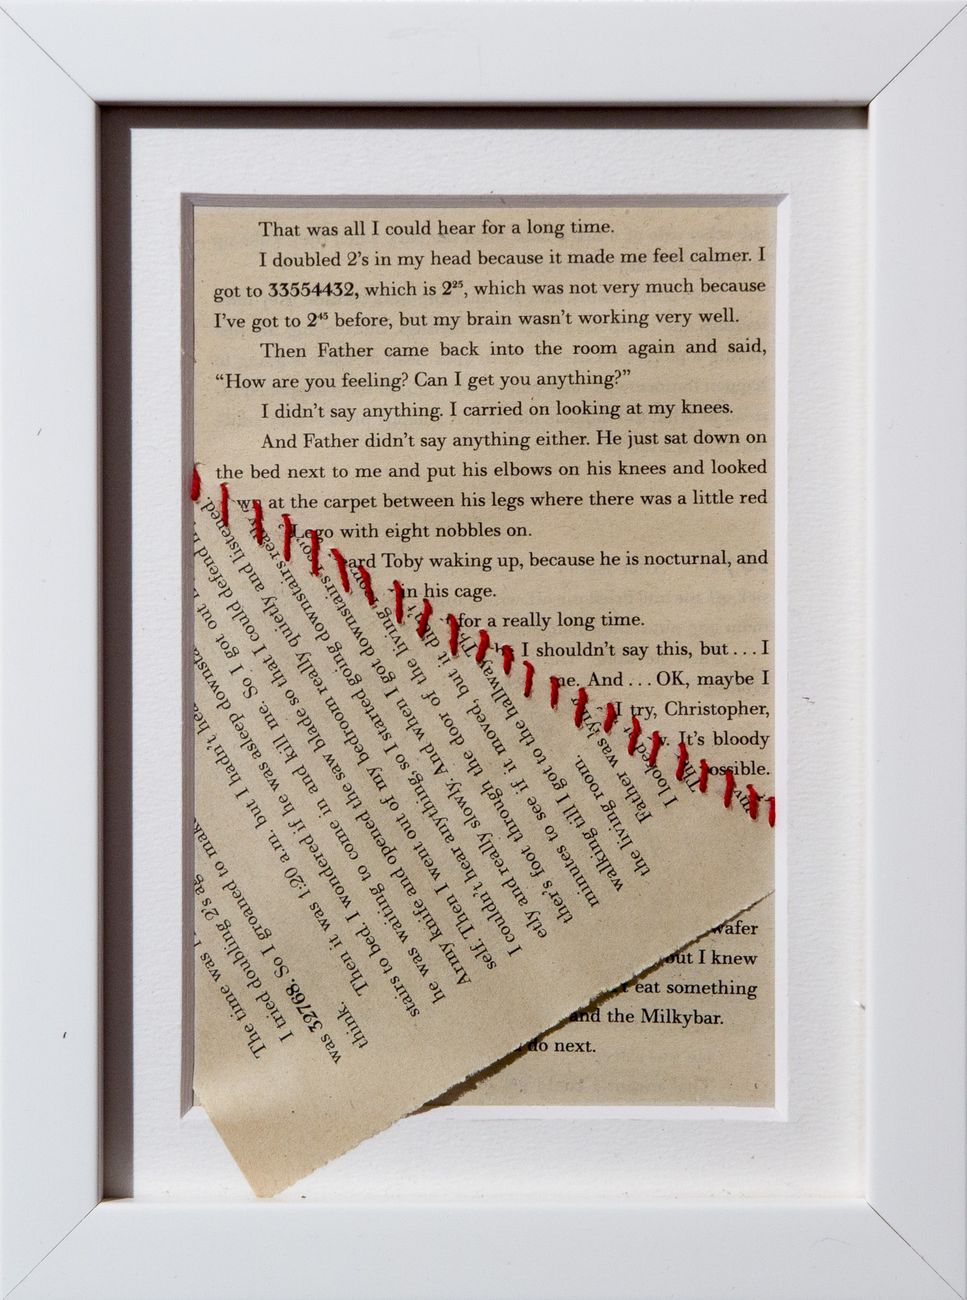 That was all I could hear for a long time.
I doubled 2's in my head because it made me feel calmer. I
got to 33554432, which is 2²⁵, which was not very much because
I've got to 2⁴⁵ before, but my brain wasn't working very well.
Then Father came back into the room again and said,
“How are you feeling? Can I get you anything?”
I didn't say anything. I carried on looking at my knees.
And Father didn't say anything either. He just sat down on
the bed next to me and put his elbows on his knees and looked
at the carpet between his legs where there was a little red
Lego with eight nobbles on.
Toby waking up, because he is nocturnal, and
in his cage.
for a really long time.
I shouldn't say this, but . . . I
And . . . OK, maybe I
I try, Christopher,
It's bloody
wafer
but I knew
eat something
and the Milkybar.
do next.
The time was
I tried doubling 2's
was 32768. So I groaned to make
think.
Then it was 1:20 a.m. but I hadn't
stairs to bed. I wondered if he was asleep
he was waiting to come in and kill me. So I got out
Army knife and opened the saw blade so that I could defend
self. Then I went out of my bedroom really quietly and listened.
I couldn't hear anything, so I started going downstairs
and really slowly. And when I got downstairs I
foot through the door of the living
minutes to see if it moved, but it
walking till I got to the hallway.
the living room.
Father was lying
I looked